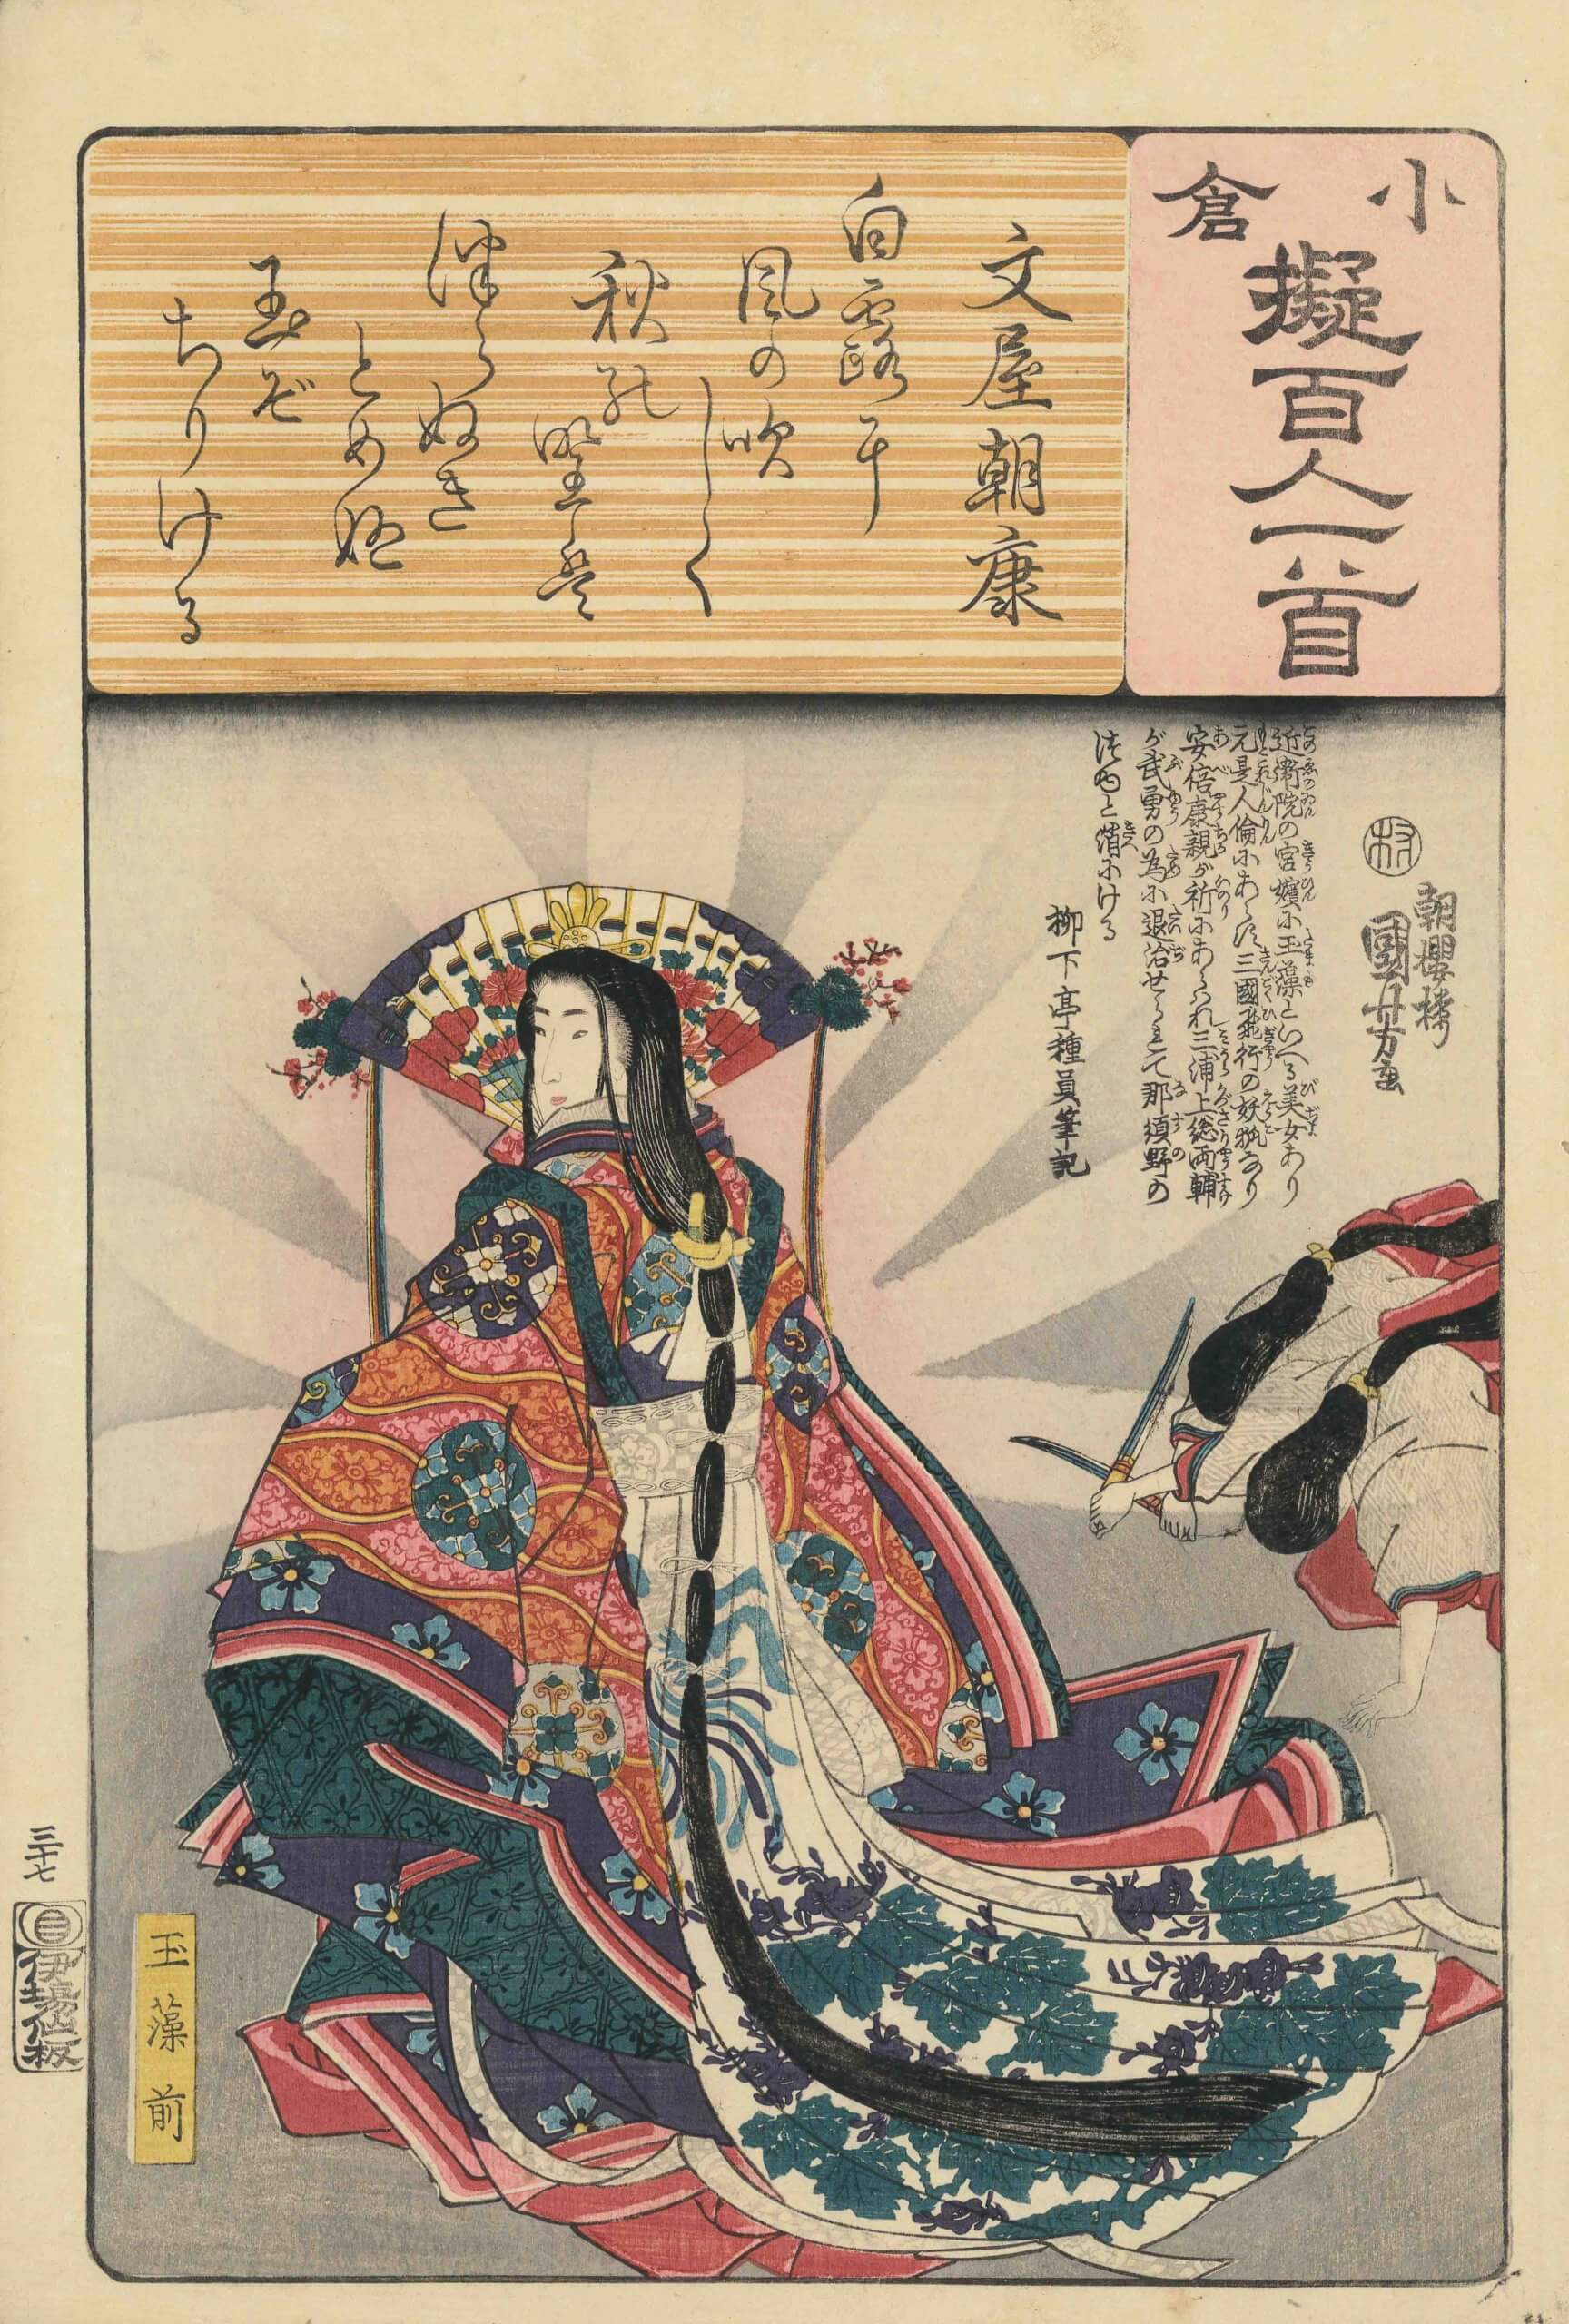 小倉
擬百人一首
文屋朝康
白露耳
風の吹
しく
秋の
野盤
津らぬき
とめぬ
玉ぞ
ちりける
近衛院の宮嬪に玉藻といへる美女あり
元是人倫にあらず三國飛行の妖狐なり
安倍康親が祈にあらはれ三浦上総両輔
が武勇の為に退治せられて那須野の
つゆと消にける
柳下亭種員筆記
朝櫻楼
國芳画
玉藻前
三十七
伊場仙板